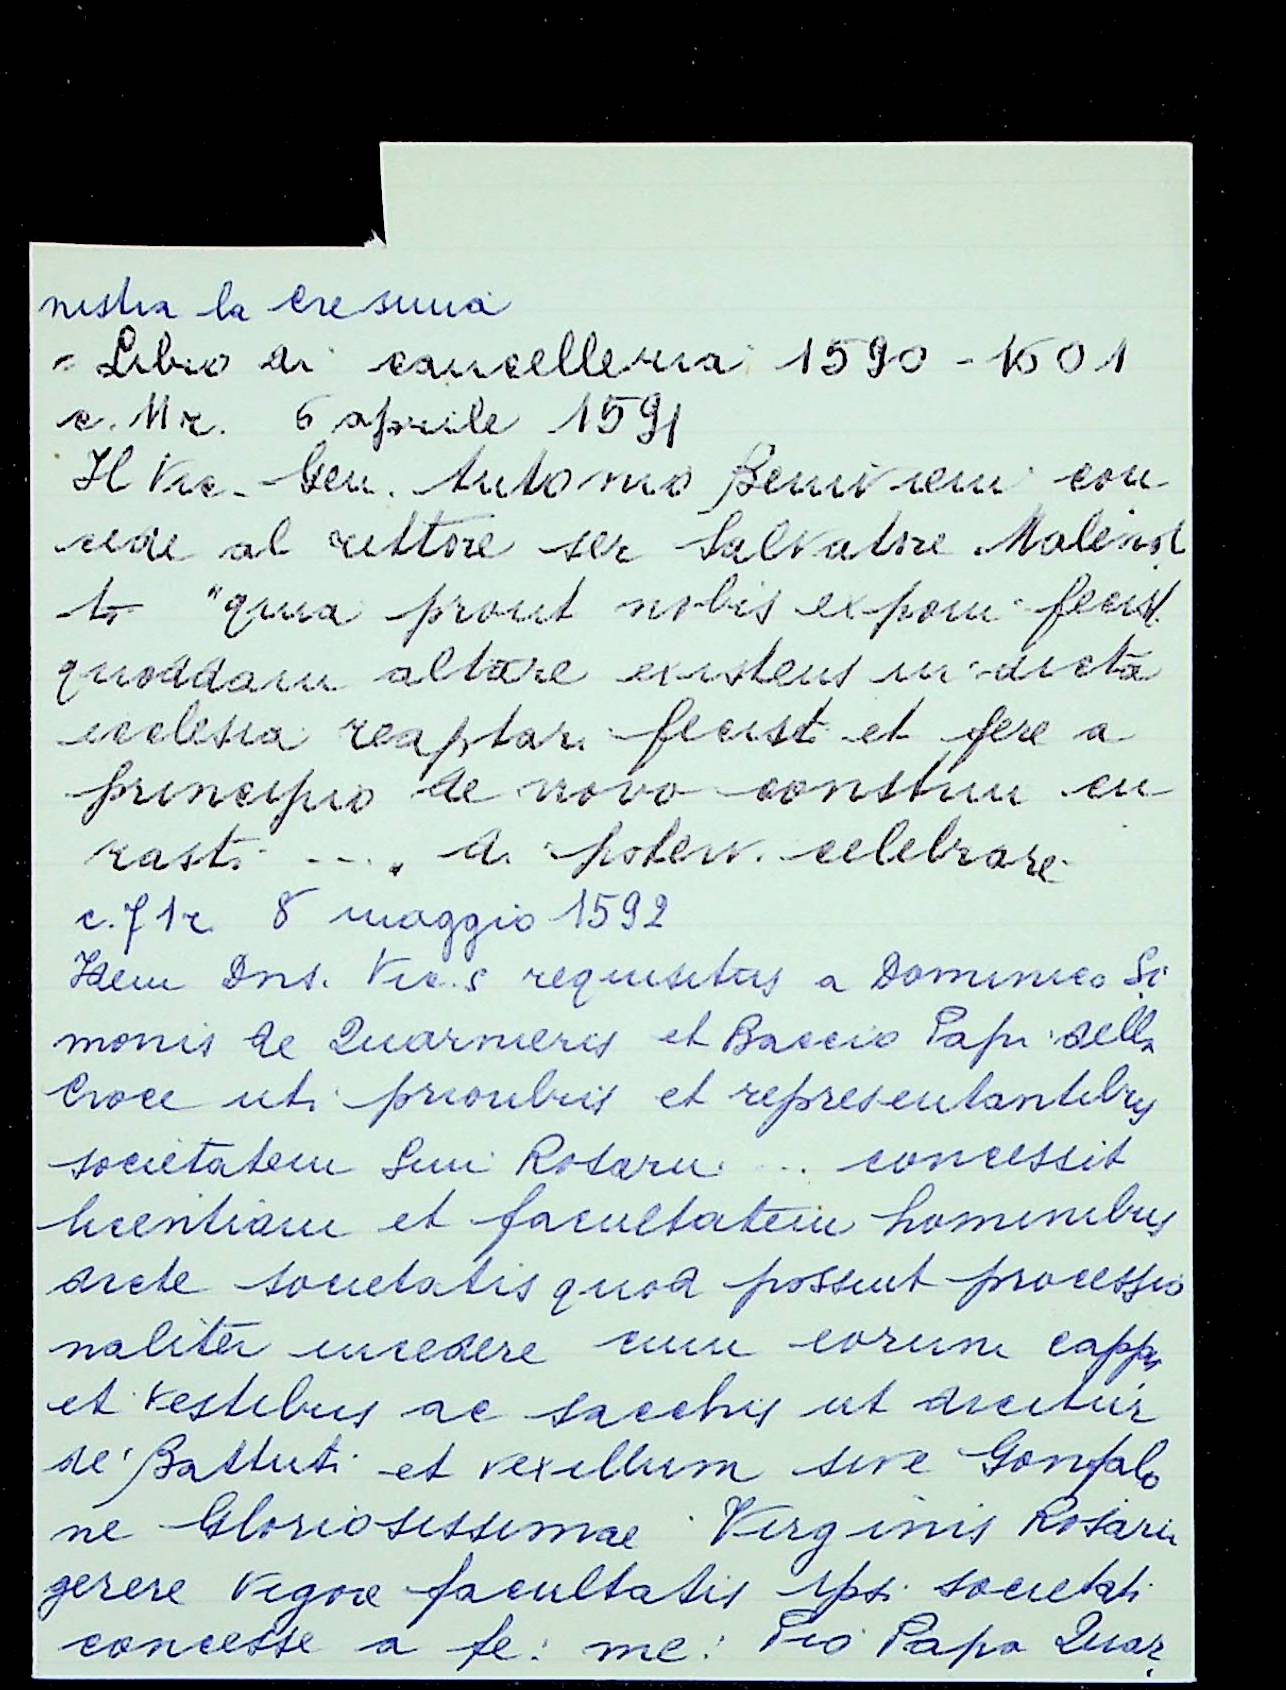 nistra la cresima
= Libro di cancelleria 1590 - 1601
c. 11r. 6 aprile 1591
Il Vic. Gen. Antonio Benivieni con
cede al rettore ser Salvatore
to "quia prout nobis exponi fecist.
quoddam altare existens in dicta
ecclesia reaptari fecisti et fere a
principio de novo construi cu
rasti .... di poterv. celebrare
c. 71r 8 maggio 1592
Idem Dns. Vic.s requisitus a Dominico Si
monis de Quarnieris et Baccio Papi della
Croce uti prioribus et representantibus
societatem Smi Rosarii ... concessit
licentiam et facultatem hominibus
dicte societatis quod possint processio
naliter incedere cum eorum cappis
et vestibus ac sacchis ut dicitur
de' Battuti et vexillum sive Gonfalo
ne Gloriosissimae Virginis Rosarii
gerere vigore facultatis ipsi societati
concesse a fe: me: Pio Papa Quar